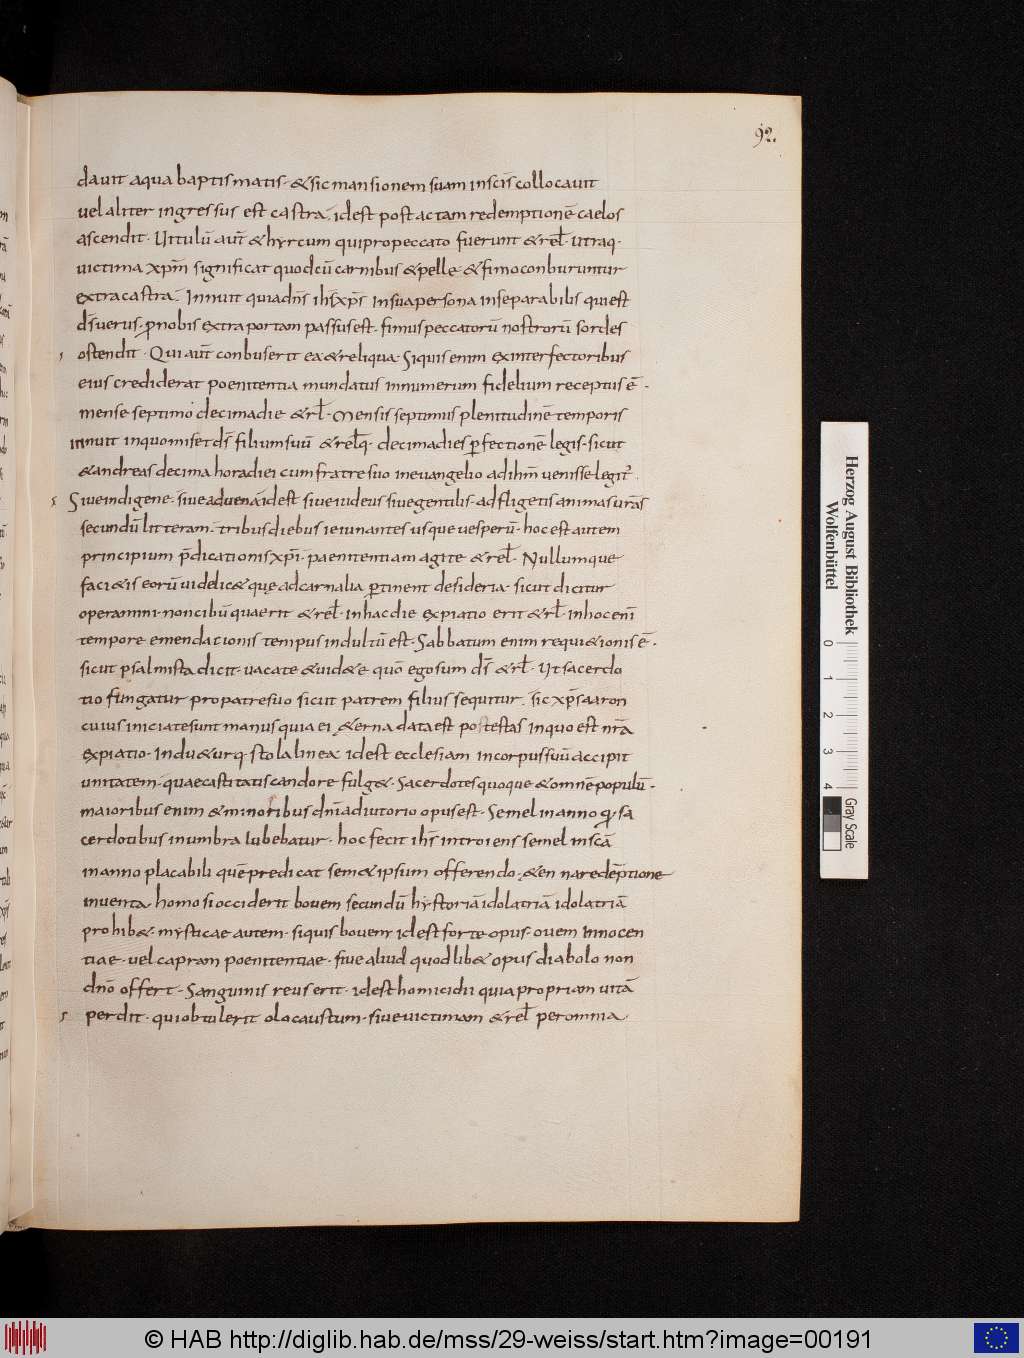 92.
dauit aqua baptismatis · & sic mansionem suam in sc̄is collocauit
uel aliter ingressus est castra. id est post actam redemptionē caelos
ascendit · Uitulū aut̄ & hyrcum qui pro peccato fuerunt & rel̄ · utraq·
uictima xp̄m significat quod cū carnibus & pelle & fimo conburuntur
extra castra. Innuit quia dn̄s ih̄s xp̄s in sua persona inseparabilis qui est
d̄s uerus · ꝓ nobis extra portam passus est · fimus peccatorū nostrorū sordes
ostendit · Qui aut̄ conbuserit ea & reliqua · Si quis enim ex interfectoribus
eius crediderat poenitentia mundatus in numerum fidelium receptus ē ·
mense septimo decima die & rl̄ · Mensis septimus plenitudinē temporis
innuit in quo miset d̄s filium suū & relq̄ · decima dies ꝑfectionē legis · sicut
& andreas decima hora diei cum fratre suo in euangelio ad ih̄m uenisse legit᷑ .
Siue indigene · siue aduena id est siue iudeus siue gentilis · adfligetis animas ur̄as
secundū litteram · tribus diebus ieiunantes usque uesperū · hoc est autem
principium p̄dicationis xp̄i · paenitentiam agite & rel̄ · Nullumque
faci&is eorū uidelic& quę ad carnalia ꝑtinent desideria · sicut dicitur
operamini · non cibū qua erit & rel̄ · in hac die expiatio erit & rl̄ · in hoc eni᷑
tempore emendationis tempus indultū est · Sabbatum enim requi&ionis ē ·
sicut psalmista dicit · uacate & uid&e quō ego sum d̄s & rl̄ · Ut sacerdo
tio fungatur pro patre suo sicut patrem filius sequitur . sic xp̄s aaron
cuius iniciate sunt manus quia ei . &erna data est postestas in quo est nr̄a
expiatio · indu&urq· stola linea · id est ecclesiam in corpus suū accipit
unitatem · quae castitatis candore fulg& · Sacerdotes quoque & omnē populū ·
maioribus enim & minoribus dn̄i adiutorio opus est · Semel in anno q̄· sa
cerdotibus in umbra iubebatur · hoc fecit ih̄s introiens semel in sc̄a
in anno placabili quē predicat sem&ipsum offerendo · &en na redēptione
inuenta homo si occiderit bouem secundū hystoriā idolatriā idolatriā
prohib& · mysticae autem · siquis bouem id est forte opus · ouem innocen
tiae · uel capram poenitentiae · siue aliud quodlib& opus diabolo non
dn̄o offert · Sanguinis reus erit · id est homicidii quia propriam uitā
perdit · qui obtulerit olocaustum · siue uictimam & rel̄ per omnia ·
Herzog August Bibliothek
Wolfenbüttel
0 1 2 3 4
Gray Scale
© HAB http://diglib.hab.de/mss/29-weiss/start.htm?image=00191